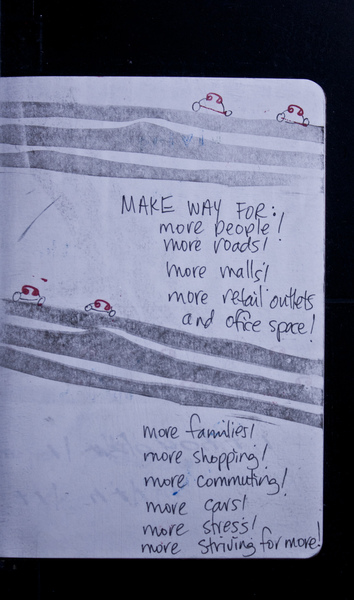 MAKE WAY FOR:
more people!
more roads!
more malls!
more retail outlets
and ofice space!
more families!
more shopping!
more commuting!
more cars!
more stress!
more striving for more!